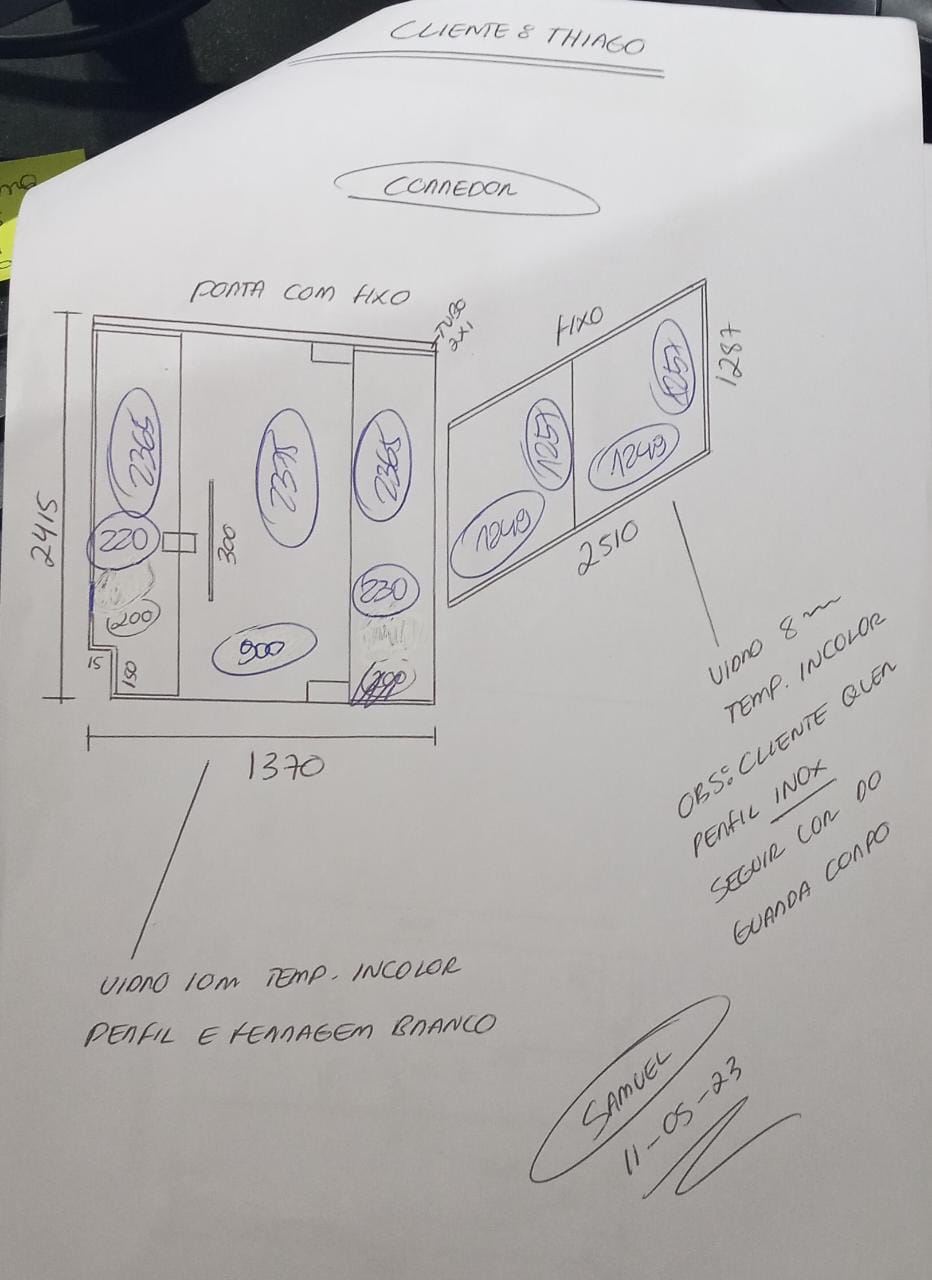 CLIENTE: THIAGO
CORREDOR
PORTA COM FIXO
TUBO
2X1
FIXO
1287
2365
2375
2365
1257
1257
1249
1249
2415
220
300
230
200
2510
15
150
900
200
1370
VIDRO 8m
TEMP. INCOLOR
OBS: CLIENTE QUER
PERFIL INOX
SEGUIR COR DO
GUARDA CORPO
VIDRO 10m TEMP. INCOLOR
PERFIL E FERRAGEM BRANCO
SAMUEL
11-05-23